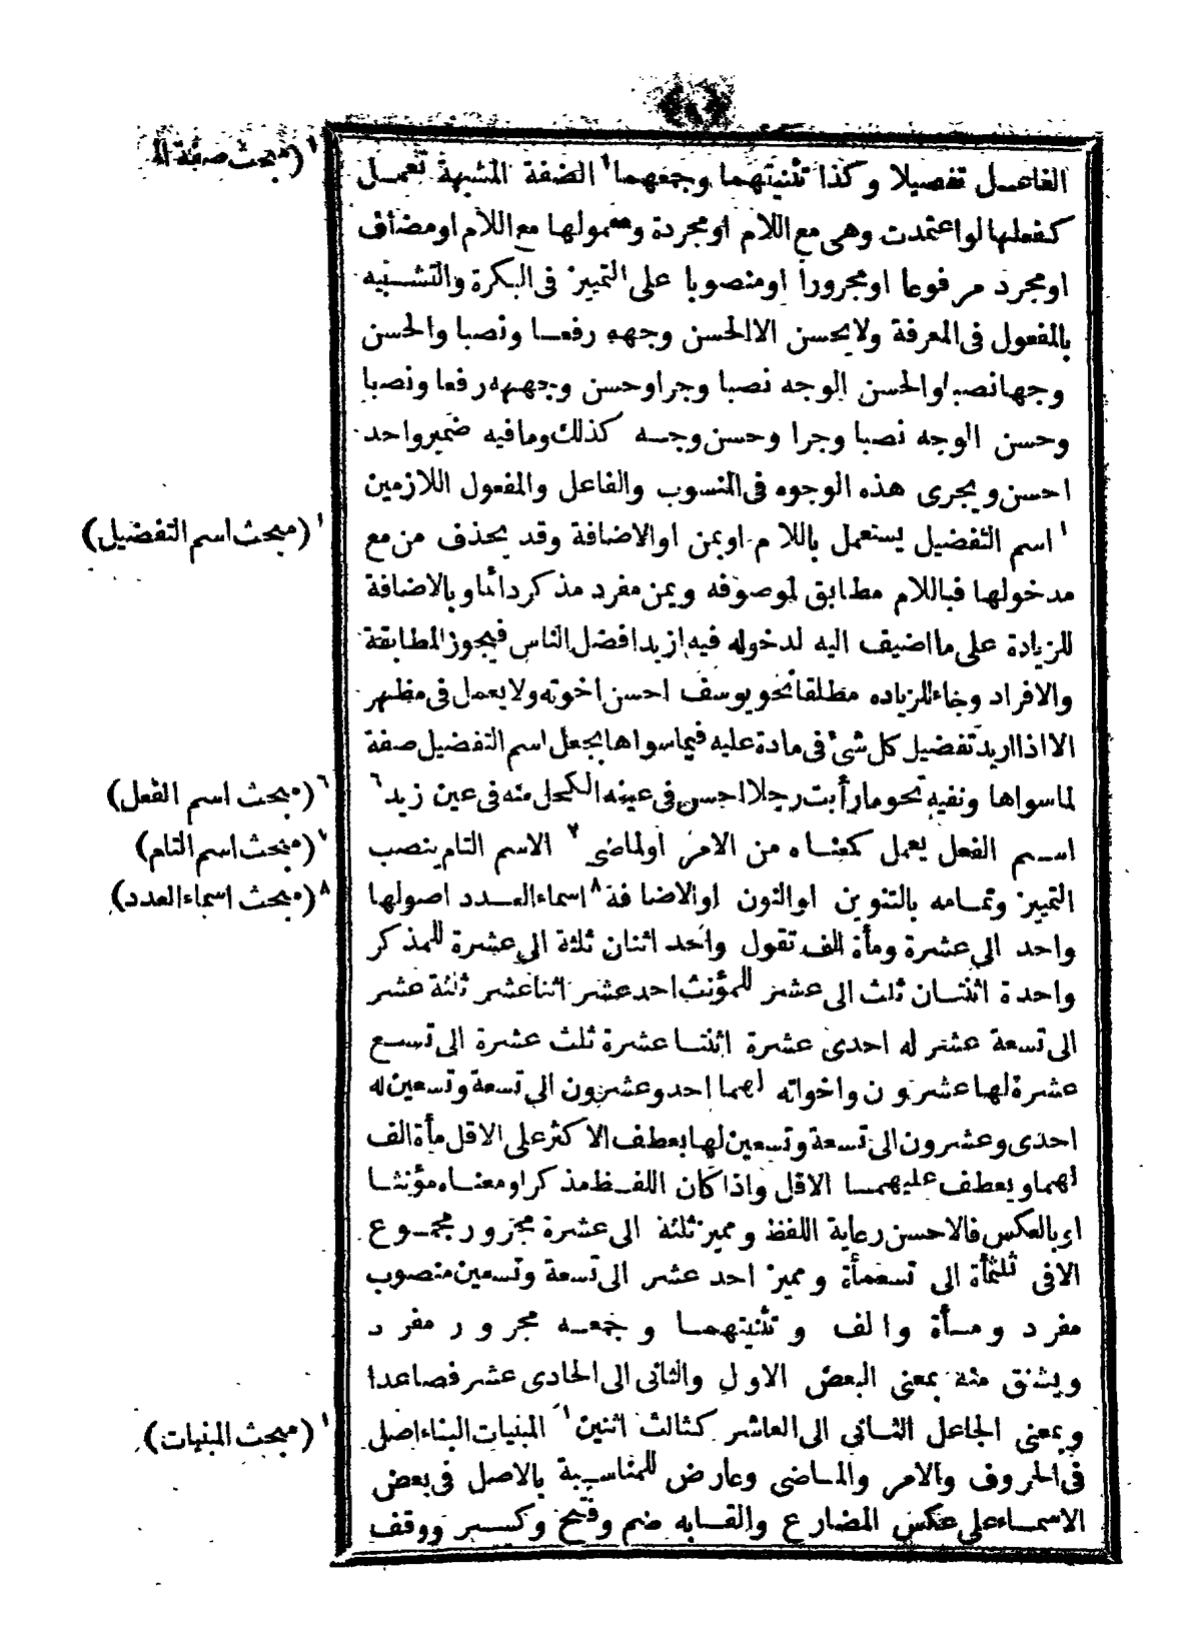 الفاعل تفصيلا وكذا تثنيتهما وجمعهما ١ الصفة المشبهة تعمل
١ (مبحث صفة الم
كفعلها لواعتمدت وهى مع اللام اومجردة ومعمولها مع اللام اومضاف
اومجرد مرفوعا اومجرورا اومنصوبا على التمييز فى النكرة والتشبيه
بالمفعول فى المعرفة ولايحسن الاالحسن وجهه رفعا ونصبا والحسن
وجها نصبا والحسن الوجه نصبا وجرا وحسن وجهه رفعا ونصبا
وحسن الوجه نصبا وجرا وحسن وجه كذلك ومافيه ضمير واحد
احسن ويجرى هذه الوجوه فى المنسوب والفاعل والمفعول اللازمين
١ اسم التفضيل يستعمل باللام اوبمن اوالاضافة وقد يحذف من مع
١ (مبحث اسم التفضيل)
مدخولها فباللام مطابق لموصوفه وبمن مفرد مذكر دائما وبالاضافة
للزيادة على مااضيف اليه لدخوله فيه ازيد افضل الناس فيجوز المطابقة
والافراد وجاء للزياده مطلقا نحو يوسف احسن اخوته ولايعمل فى مظهر
الا اذا اريد تفضيل كل شئ فى مادة عليه فيماسواها بجعل اسم التفضيل صفة
لماسواها ونفيه نحو مارأيت رجلا احسن فى عينه الكحل منه فى عين زيد ٦
٦ (مبحث اسم الفعل)
اسم الفعل يعمل كمعناه من الامر اولماضى ٧ الاسم التام ينصب
٧ (مبحث اسم التام)
التمييز وتمامه بالتنوين اوالنون اوالاضافة ٨ اسماء العدد اصولها
٨ (مبحث اسماء العدد)
واحد الى عشرة ومأة الف تقول واحد اثنان ثلثة الى عشرة للمذكر
واحدة اثنتان ثلث الى عشر للمؤنث احد عشر اثنا عشر ثلثة عشر
الى تسعة عشر له احدى عشرة اثنتا عشرة ثلث عشرة الى تسع
عشرة لها عشرون واخواته لهما احد وعشرون الى تسعة وتسعين له
احدى وعشرون الى تسعة وتسعين لها بعطف الاكثر على الاقل مأة الف
لهما ويعطف عليهما الاقل واذا كان اللفظ مذكرا ومعناه مؤنثا
اوبالعكس فالاحسن رعاية اللفظ ومميز ثلثة الى عشرة مجرور مجموع
الافى ثلثمأة الى تسعمأة ومميز احد عشر الى تسعة وتسعين منصوب
مفرد ومأة والف وتثنيتهما وجمعه مجرور مفرد
ويشتق منه بمعنى البعض الاول والثانى الى الحادى عشر فصاعدا
وبمعنى الجاعل الثانى الى العاشر كثالث اثنين ١ المبنيات البناء اصلى
١ (مبحث المبنيات)
فى الحروف والامر والماضى وعارض للمناسبة بالاصل فى بعض
الاسماء على عكس المضارع والقابه ضم وفتح وكسر ووقف